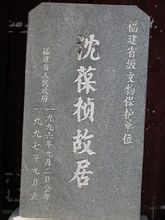 福建省级文物保护单位
沈葆桢故居
福建省人民政府
一九九六年九月二日公布
一九九七年九月立